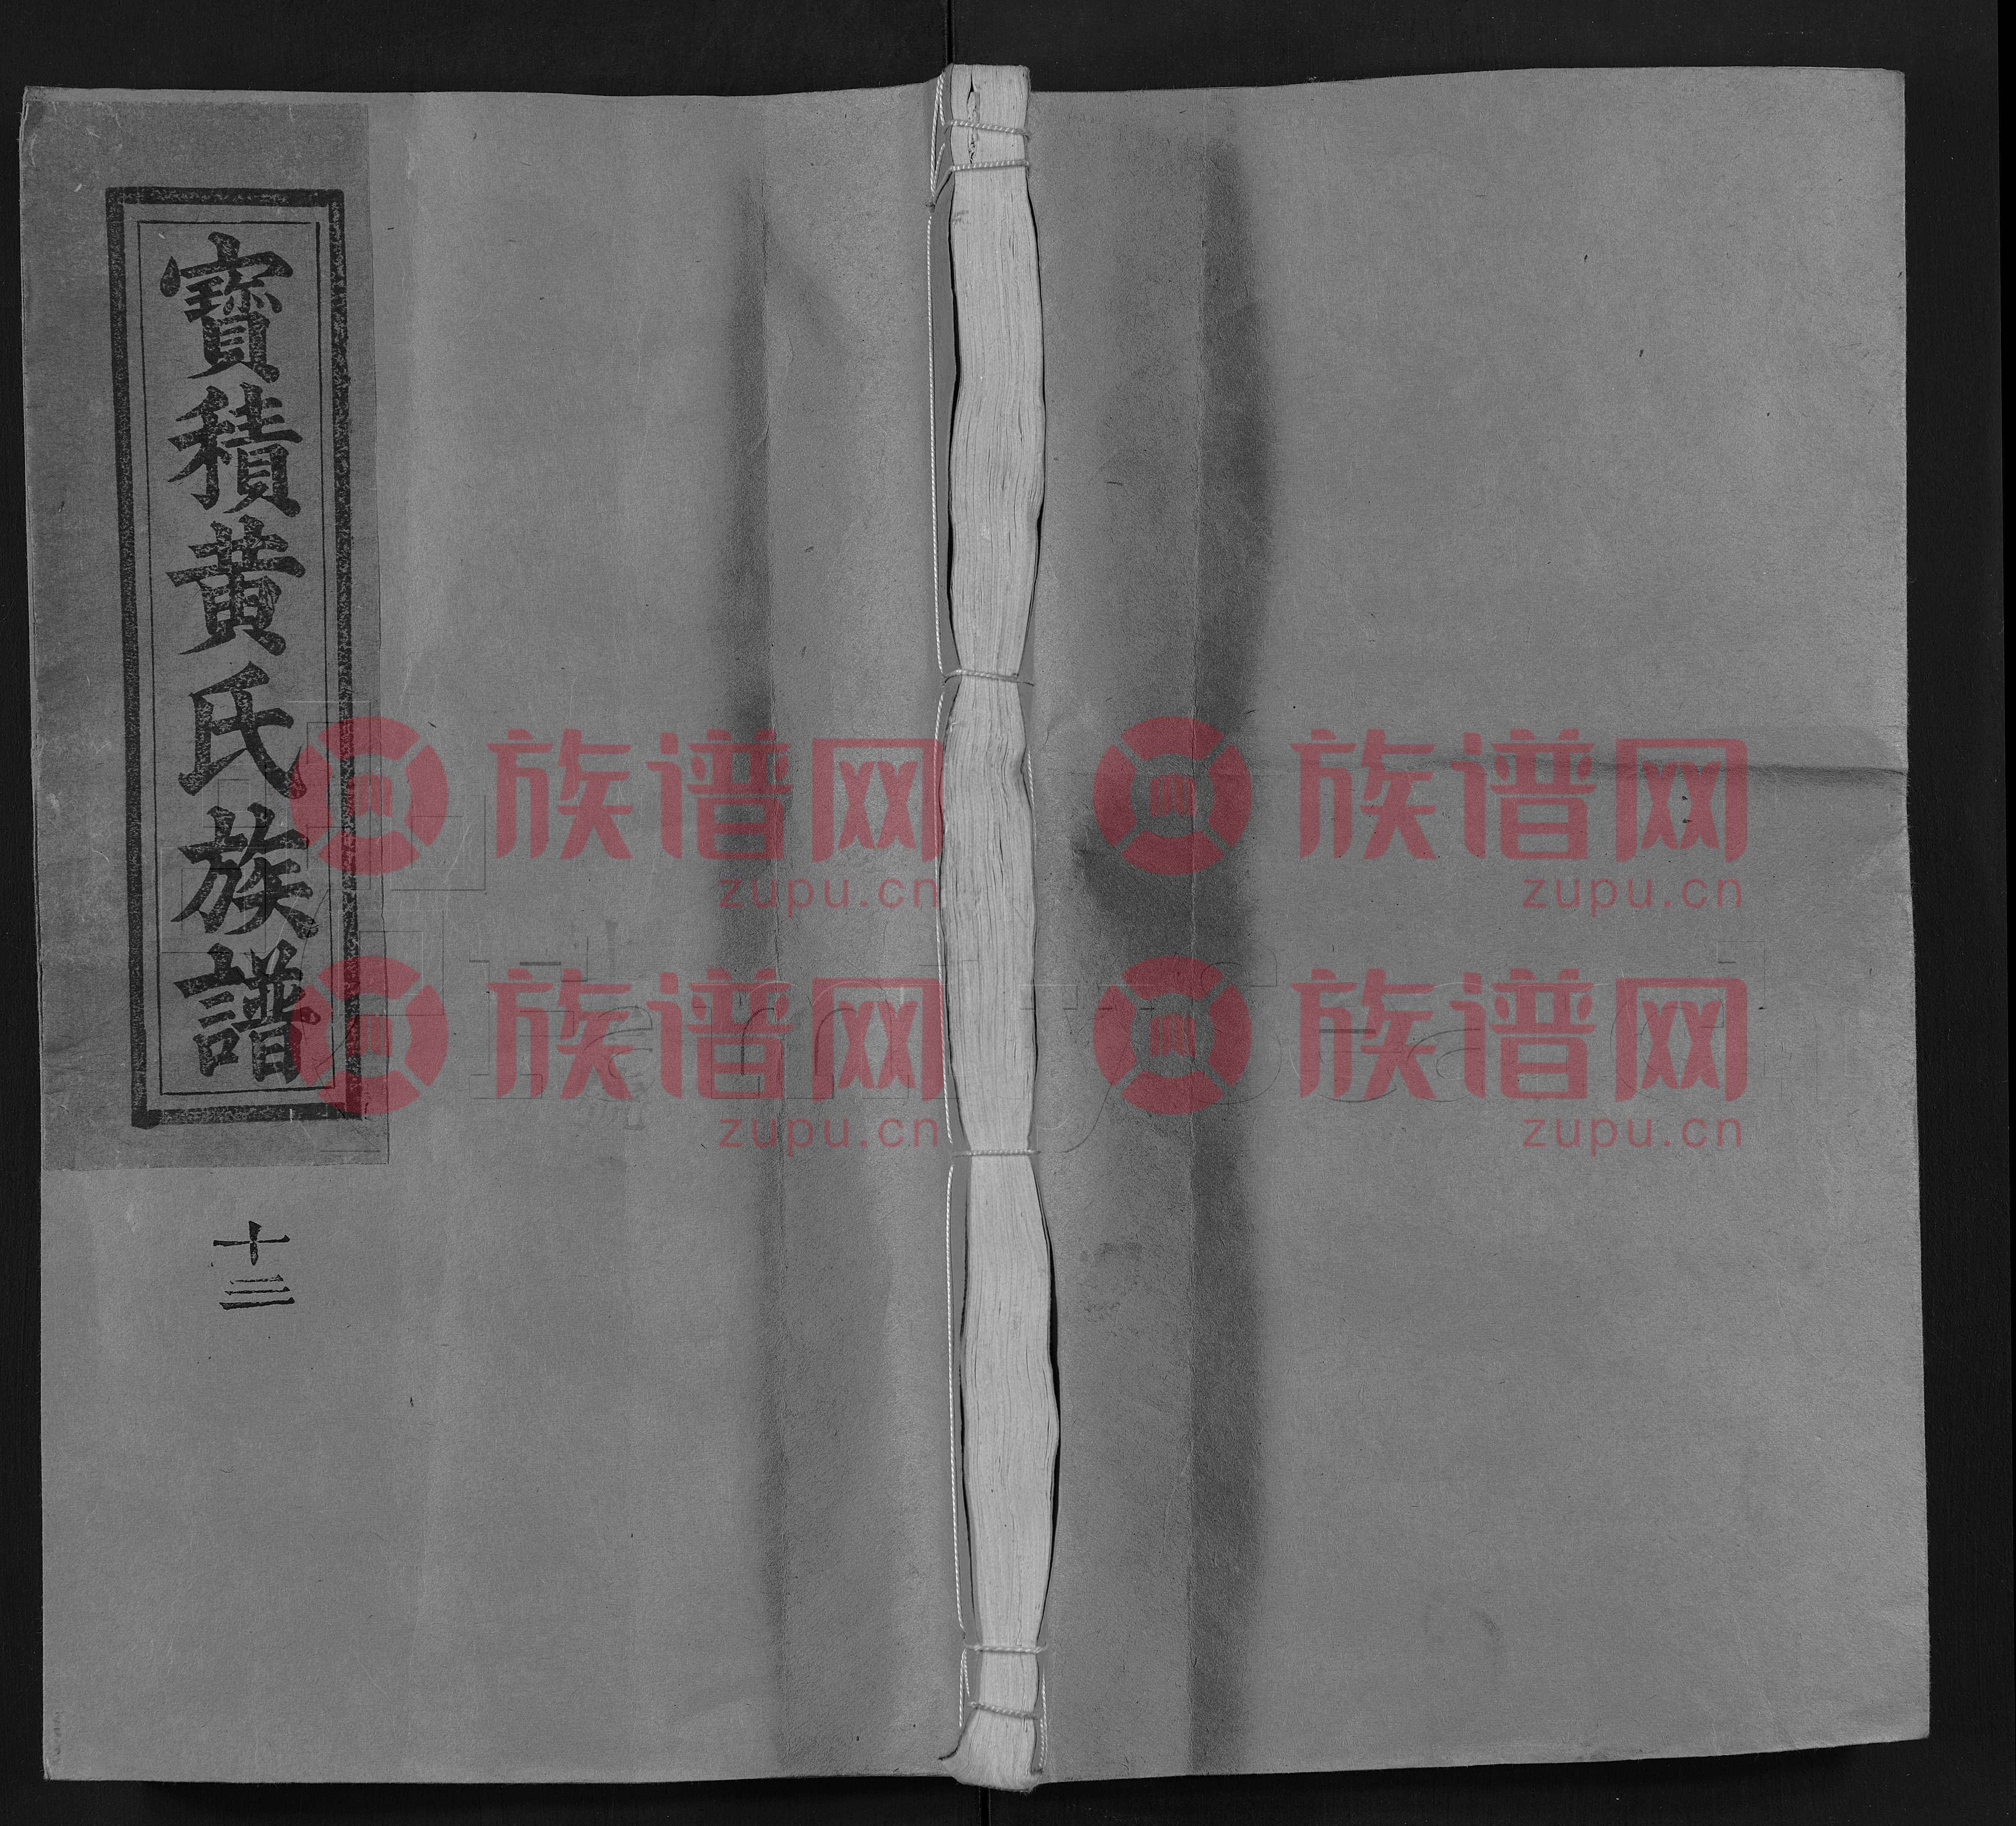 寳積黄氏族譜
十三
族谱网 族谱网
zupu.cn zupu.cn
族谱网 族谱网
zupu.cn zupu.cn